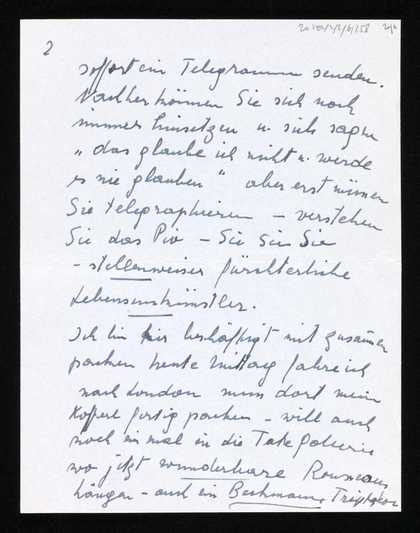 2
sofort ein Telegramm senden.
Nachher können Sie sich noch
immer hinsetzen u. sich sagen
„das glaube ich nicht u. werde
es nie glauben" aber erst müssen
Sie telegraphieren – verstehen
Sie das Piv – Sie Sie
– stellenweiser fürchterliche
Lebensunkünstler.
Ich bin hier beschäftigt mit zusammen
packen heute Mittag fahre ich
nach London muss dort mein
Koffer fertig packen – will auch
noch ein mal in die Tate Gallerie
wo jetzt wunderbare Rousseaus
hängen – auch ein Beckmann Triptychon